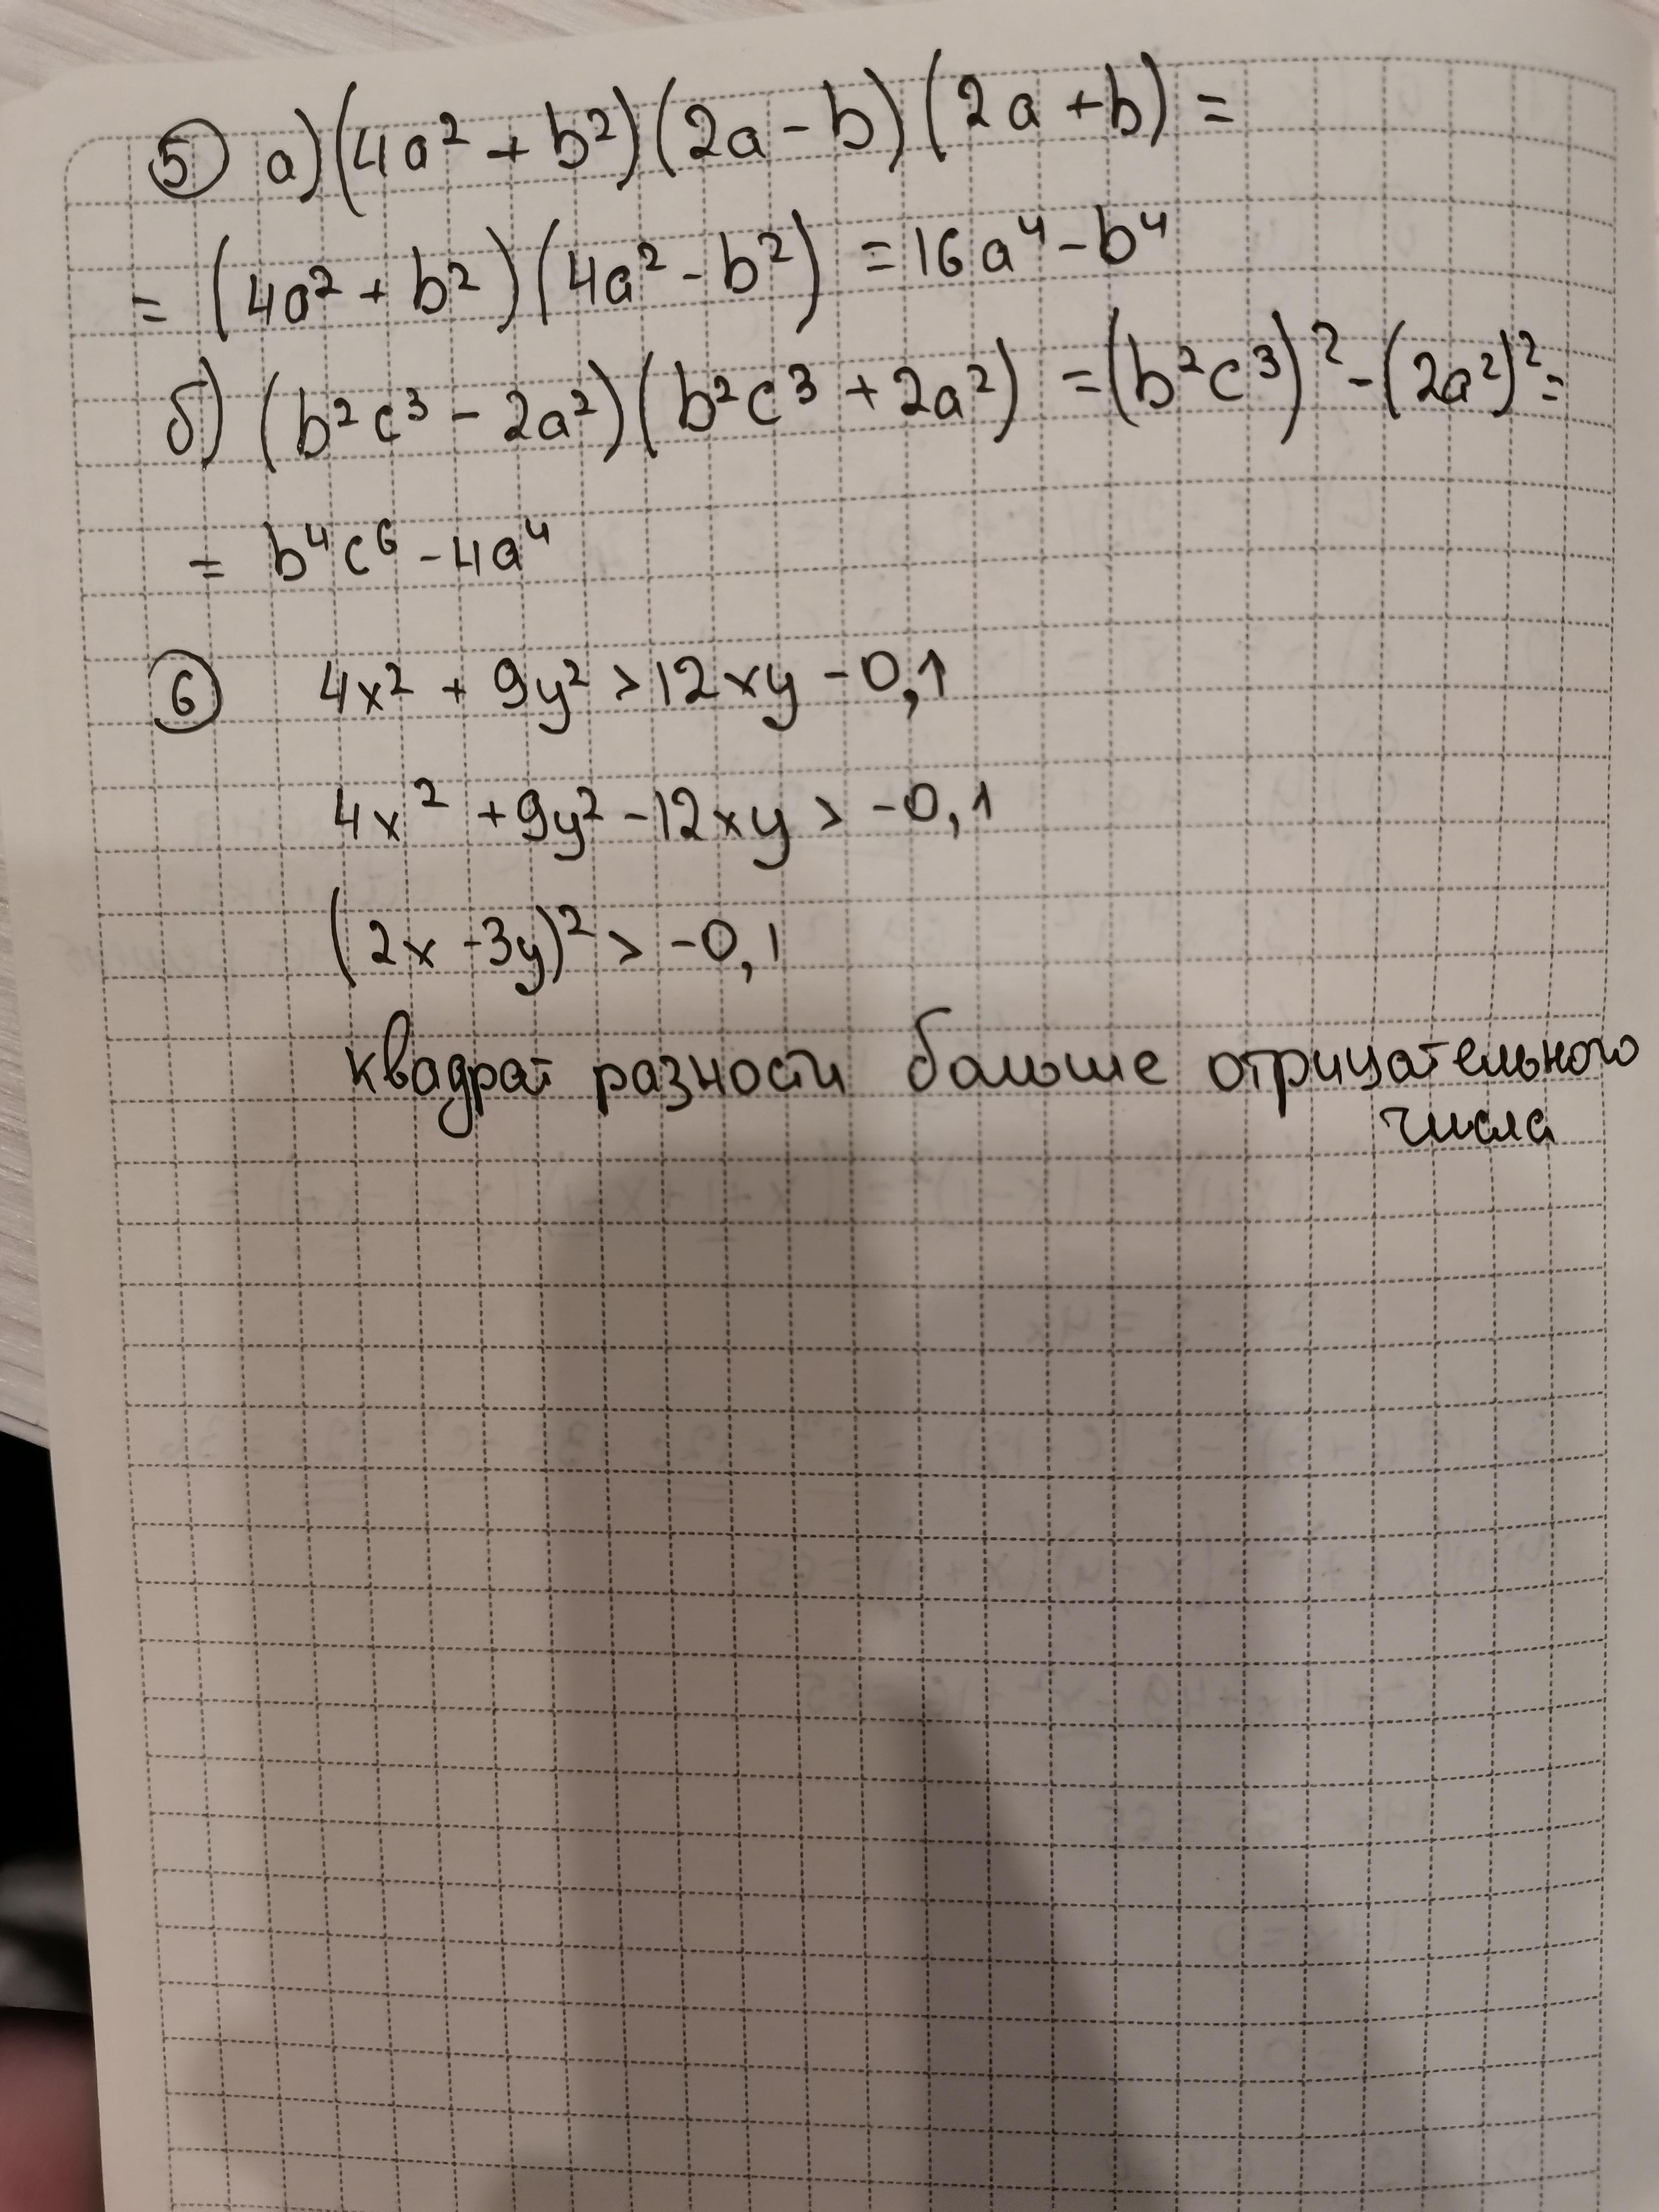 ⑤ а) (4a² + b²)(2a - b)(2a + b) =
= (4a² + b²)(4a² - b²) = 16a⁴ - b⁴
б) (b²c³ - 2a²)(b²c³ + 2a²) = (b²c³)² - (2a²)² =
= b⁴c⁶ - 4a⁴
⑥ 4x² + 9y² > 12xy - 0,1
4x² + 9y² - 12xy > -0,1
(2x - 3y)² > -0,1
квадрат разности больше отрицательного
числа